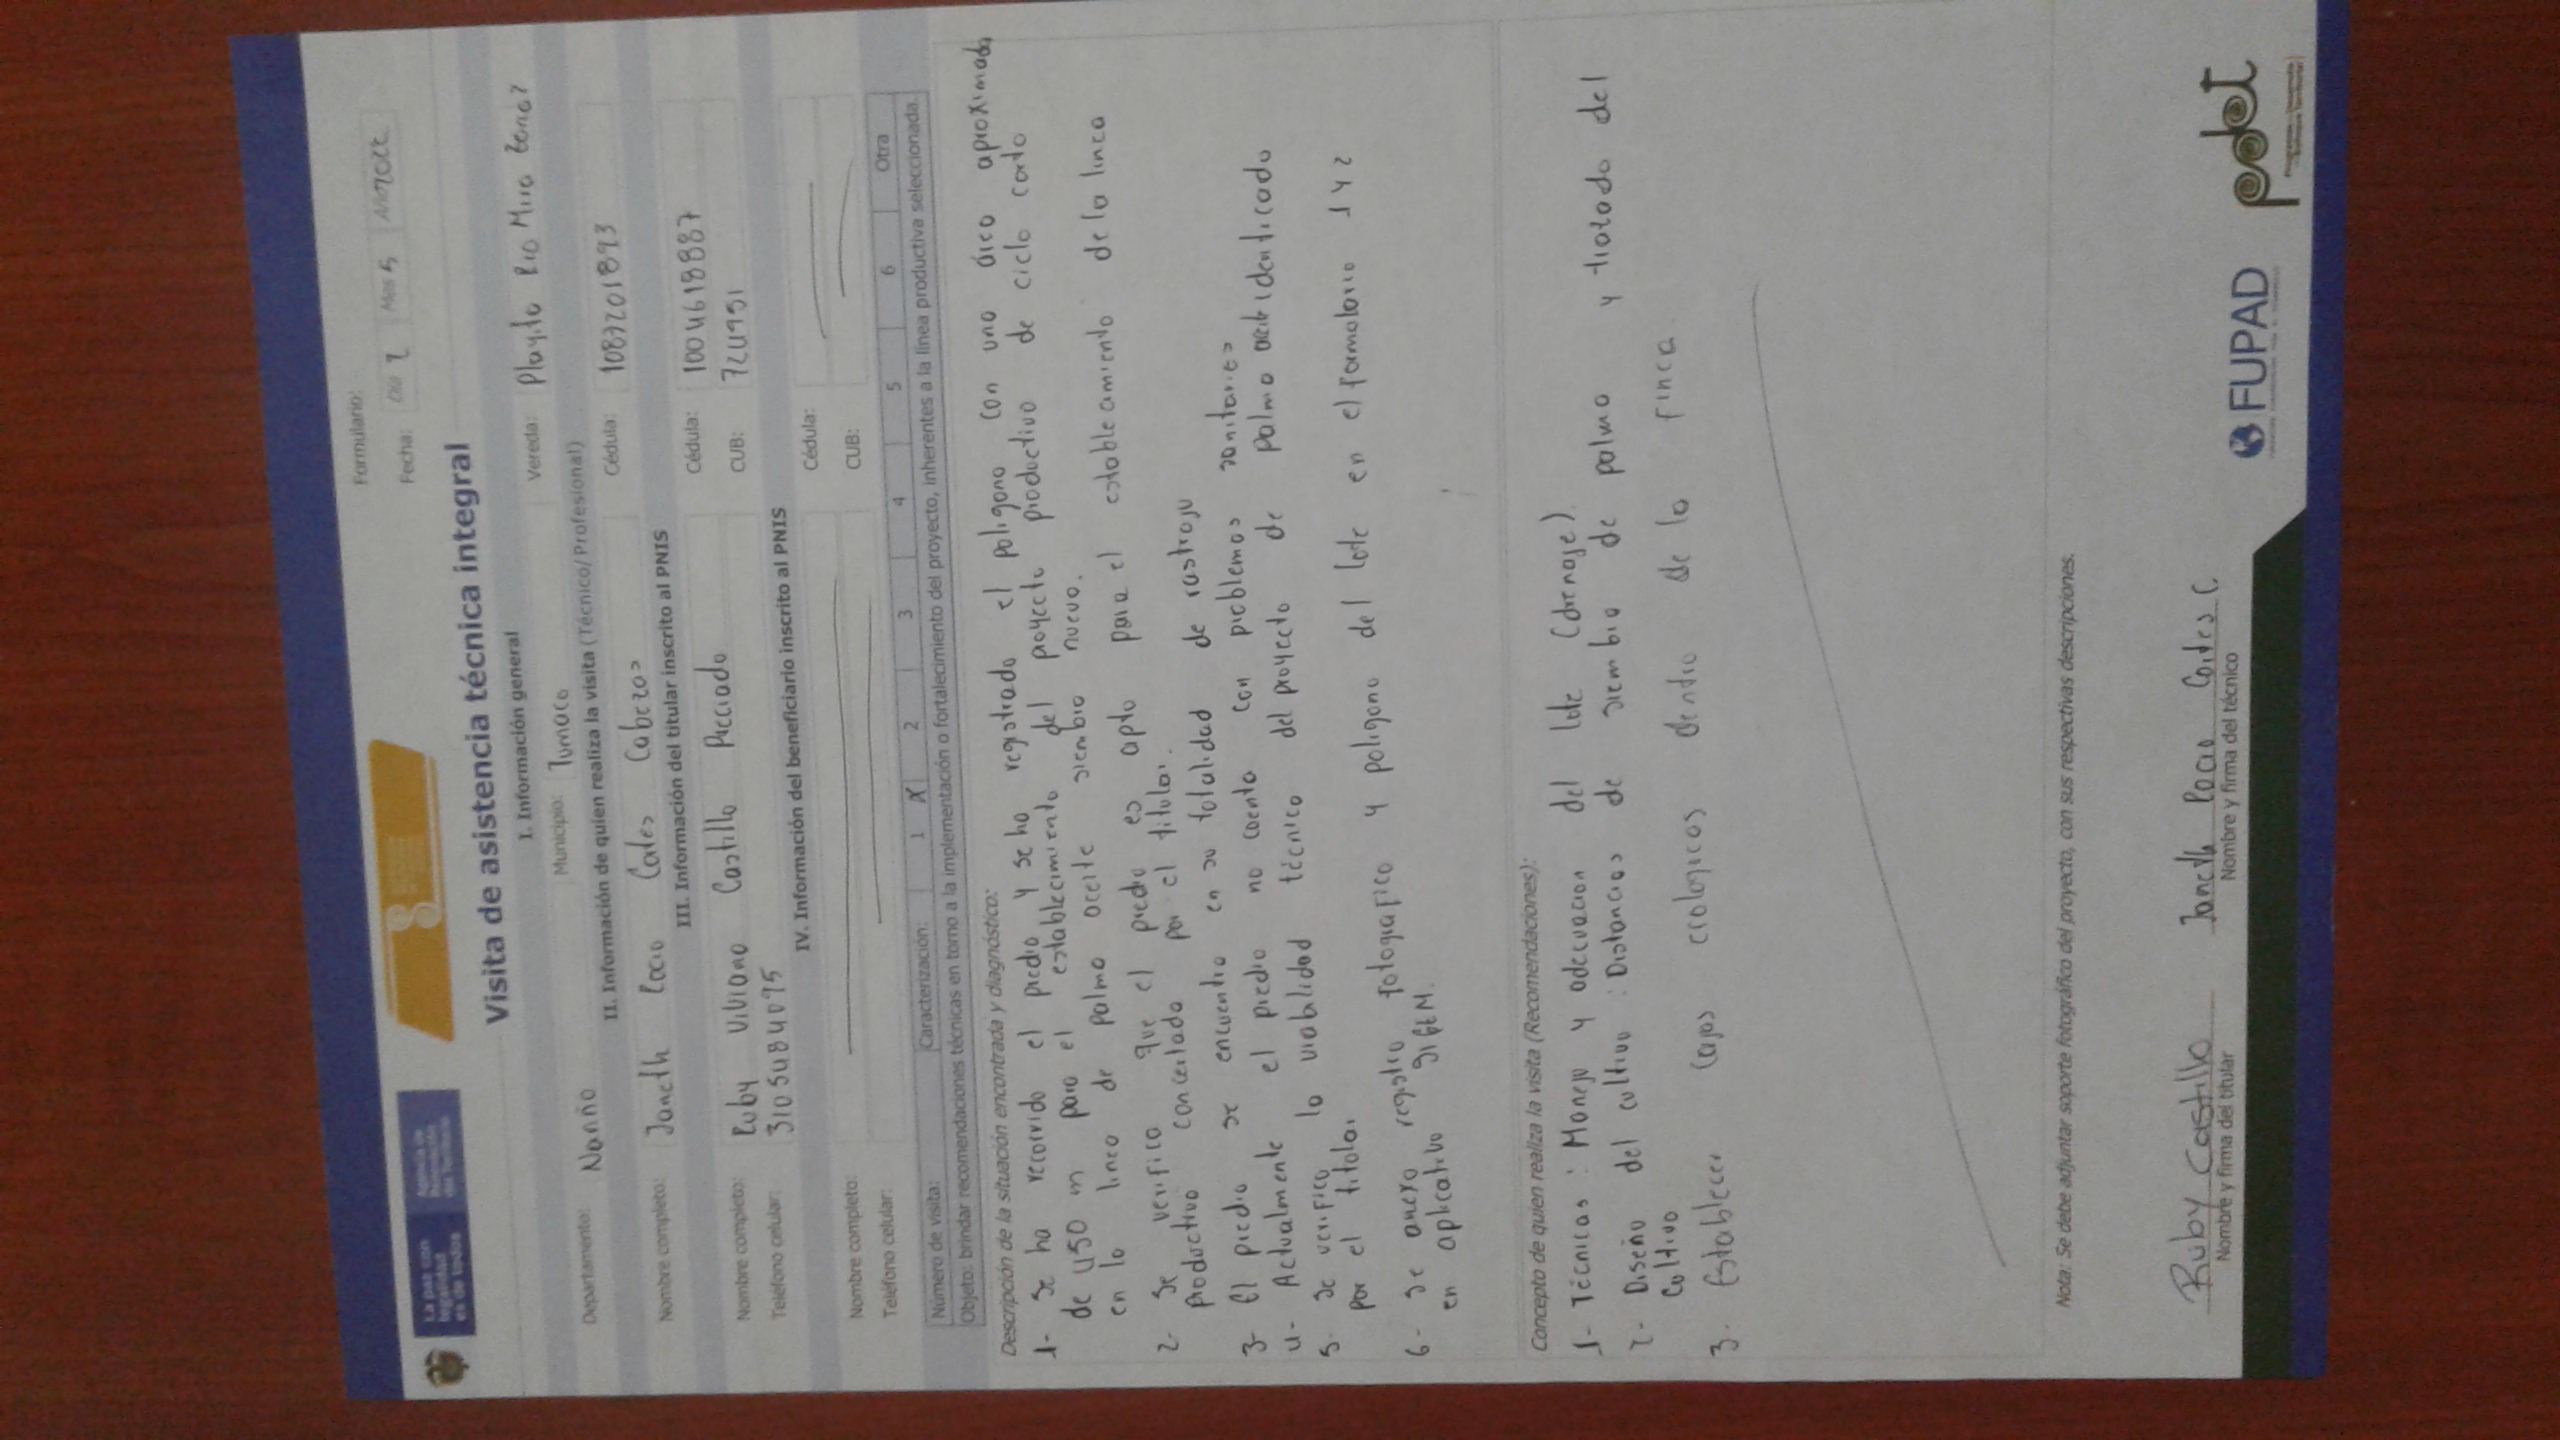 La paz con legalidad es de todos
Agencia de Renovación del Territorio
Formulario:
Fecha: Día 2 Mes 5 Año 2022
Visita de asistencia técnica integral
I. Información general
Departamento: Nariño Municipio: Tumaco Vereda: Playita Rio Mira
II. Información de quien realiza la visita (Técnico/Profesional)
Nombre completo: Janeth Rocio Cabezas Cédula: 1087201893
III. Información del titular inscrito al PNIS
Nombre completo: Ruby Viviana Castillo Preciado Cédula: 1004618887
Teléfono celular: 3105484095 CUB:
IV. Información del beneficiario inscrito al PNIS
Nombre completo: Cédula:
Teléfono celular: CUB:
Número de visita: Caracterización: 1 X 2 3 4 5 6 Otra
Objeto: brindar recomendaciones técnicas en torno a la implementación o fortalecimiento del proyecto, inherentes a la línea productiva seleccionada.
Descripción de la situación encontrada y diagnóstico:
1- se ha recorrido el predio y se ha registrado el poligono con una área aproximada
de 450 m para el establecimiento del proyecto productivo de ciclo corto
en la linea de palma aceite siembra nuevo.
2- se verifico que el predio es apto para el estableamiento de la linea
productiva concertada por el titular.
3- El predio se encuentra en su totalidad de rastrojo
4- Actualmente el predio no cuenta con problemas sanitarios
5- se verifico la viabilidad técnica del proyecto de palma aceite identificado
por el titular
6- se anexo registro fotografico y poligono del lote en el formulario 1 y 2
en aplicativo SIGEM.
Concepto de quien realiza la visita (Recomendaciones):
1- Técnicas: Manejo y adecuacion del lote (drenaje).
2- Diseño del cultivo: Distancias de siembra de palma y trotado del
cultivo
3. Establecer cajas ecologicas dentro de la finca.
Nota: Se debe adjuntar soporte fotográfico del proyecto, con sus respectivas descripciones.
Ruby Castillo
Nombre y firma del titular
Janeth Rocio Cortes C
Nombre y firma del técnico
FUPAD
pdet